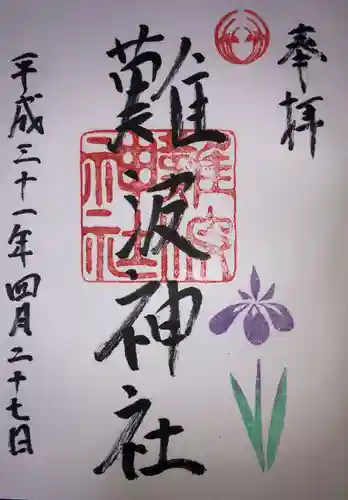 奉拝
難波神社
平成三十一年四月二十七日
難波神社